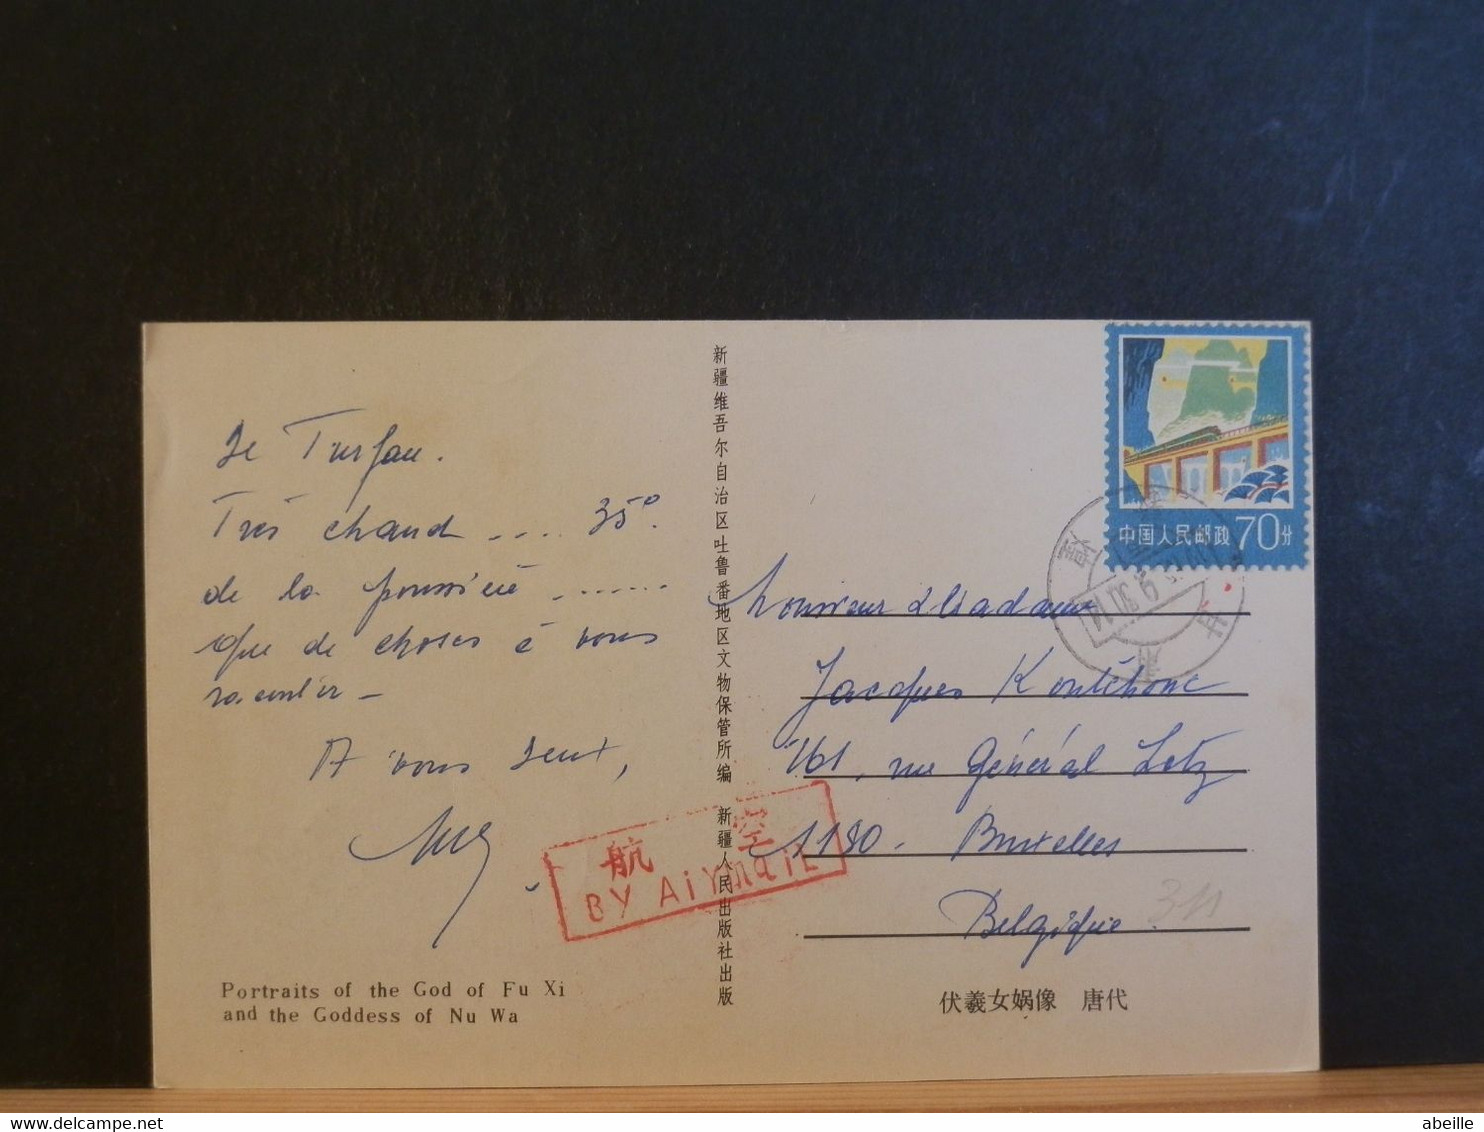 De Turfan.
Très chaud .... 35°.
de la poussière .......
que de choses à vous
raconter –
A vous deux,
新疆维吾尔自治区吐鲁番地区文物保管所编 新疆人民出版社出版
中国人民邮政 70分
Monsieur & Madame
Jacques
161, rue Général Lotz
1180 - Bruxelles
Belgique.
航空
BY AiYmaiL
Portraits of the God of Fu Xi
and the Goddess of Nu Wa
伏羲女娲像 唐代
abeille